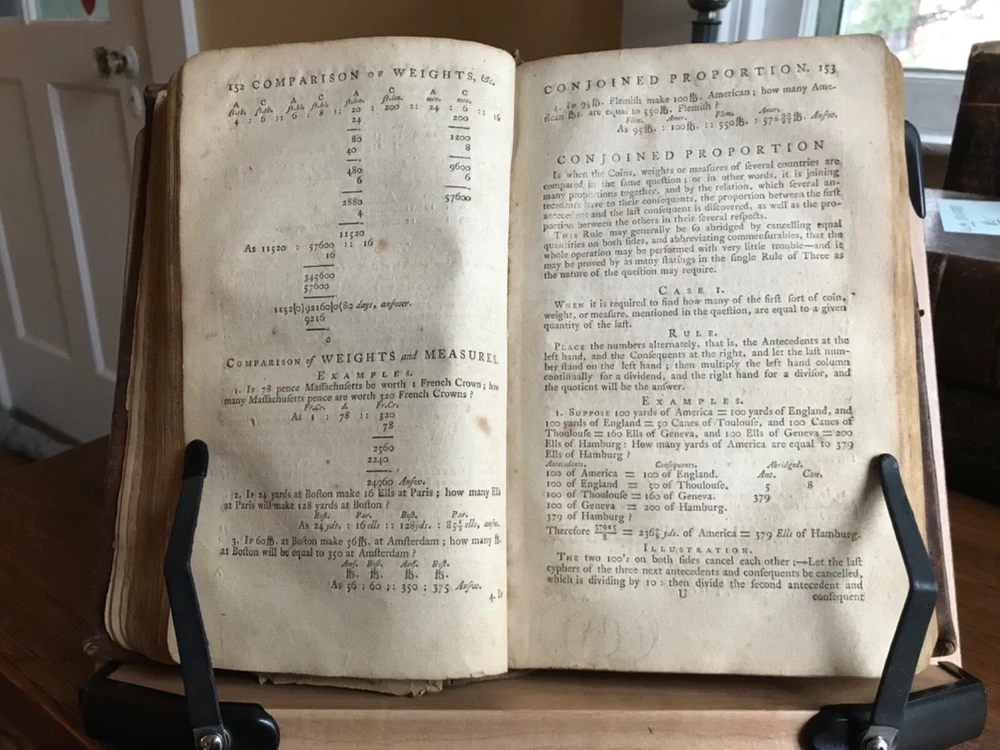 152 COMPARISON OF WEIGHTS, &c.
A C A C A C A C
4 : 6 :: 6 : 8 :: 20 : 200 :: 24 : 6 :: 16
24 200
80 1200
40 8
480 9600
6 6
2880 57600
4
11520
As 11520 : 57600 :: 16
16
345600
57600
1152|0)92160|0(80 days, answer.
9216
0
COMPARISON of WEIGHTS and MEASURES.
EXAMPLES.
1. IF 78 pence Maſſachuſetts be worth 1 French Crown; how
many Maſſachuſetts pence are worth 320 French Crowns?
Fr.Cr. d. Fr.Cr.
As 1 : 78 :: 320
78
2560
2240
24960 Anſw.
2. IF 24 yards at Boſton make 16 Ells at Paris; how many Ells
at Paris will make 128 yards at Boſton?
Boſt. Par. Boſt. Par.
As 24yds. : 16ells :: 128yds. : 85⅓ ells, anſw.
3. IF 60℔. at Boſton make 56℔. at Amſterdam; how many ℔.
at Boſton will be equal to 350 at Amſterdam?
Amſ. Boſt. Amſ. Boſt.
℔. ℔. ℔. ℔.
As 56 : 60 :: 350 : 375 Anſw.
4. IF
CONJOINED PROPORTION. 153
4. IF 95℔. Flemiſh make 100℔. American; how many Ame-
rican ℔s. are equal to 550℔. Flemiſh?
Flem. Amer. Flem. Amer.
As 95℔. : 100℔. :: 550℔. : 578 ℔. Anſw.
CONJOINED PROPORTION
Is when the Coins, weights or meaſures of ſeveral countries are
compared in the ſame queſtion; or in other words, it is joining
many proportions together, and by the relation, which ſeveral an-
tecedents have to their conſequents, the proportion between the firſt
antecedent and the laſt conſequent is diſcovered, as well as the pro-
portion between the others in their ſeveral reſpects.
THIS Rule may generally be ſo abridged by cancelling equal
quantities on both ſides, and abbreviating commenſurables, that the
whole operation may be performed with very little trouble—and it
may be proved by as many ſtatings in the ſingle Rule of Three as
the nature of the queſtion may require.
CASE 1.
WHEN it is required to find how many of the firſt ſort of coin,
weight, or meaſure, mentioned in the queſtion, are equal to a given
quantity of the laſt.
RULE.
PLACE the numbers alternately, that is, the Antecedents at the
left hand, and the Conſequents at the right, and let the laſt num-
ber ſtand on the left hand; then multiply the left hand column
continually for a dividend, and the right hand for a diviſor, and
the quotient will be the anſwer.
EXAMPLES.
1. SUPPOSE 100 yards of America = 100 yards of England, and
100 yards of England = 50 Canes of Toulouſe, and 100 Canes of
Thoulouſe = 160 Ells of Geneva, and 100 Ells of Geneva = 200
Ells of Hamburg: How many yards of America are equal to 379
Ells of Hamburg?
Antecedents. Conſequents. Abridged.
100 of America = 100 of England. Ant. Con.
100 of England = 50 of Thoulouſe. 5 8
100 of Thoulouſe = 160 of Geneva. 379
100 of Geneva = 200 of Hamburg.
379 of Hamburg?
Therefore 379×5/8 = 236⅞ yds. of America = 379 Ells of Hamburg.
ILLUSTRATION.
THE two 100's on both ſides cancel each other;—Let the laſt
cyphers of the three next antecedents and conſequents be cancelled,
which is dividing by 10: then divide the ſecond antecedent and
U conſequent